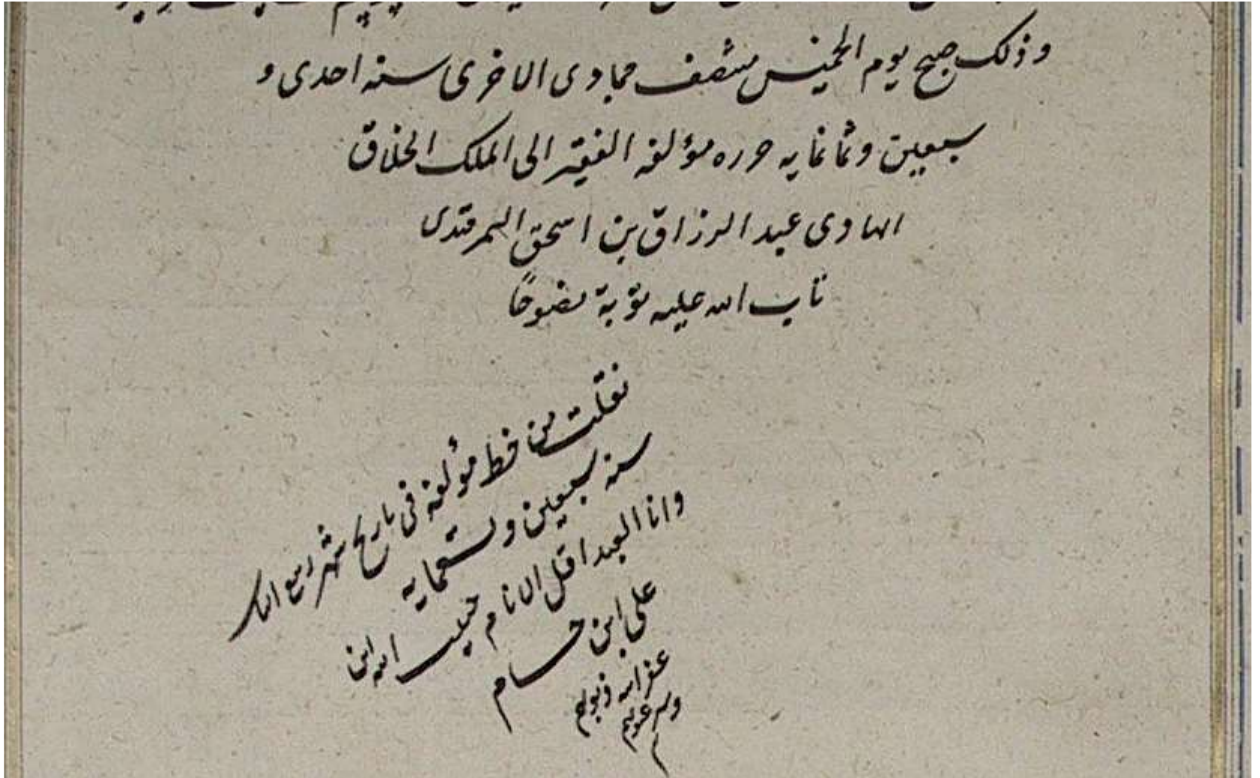 وذلك صبح يوم الخميس منتصف جمادى الاخرى سنه احدى و
سبعين وثمانمايه حرره مؤلفه الفقير الى الملك الخلاق
الهادى عبد الرزاق بن اسحق السمرقندى
تاب الله عليه توبة نصوحًا
نقلت من خط مؤلفه فى تاريخ شهر ربيع الثانى
سنه سبعين وتسعمايه
وانا العبد اقل الانام حبيب الله ابن
على ابن حسام
غفر الله ذنوبهم
وستر عيوبهم